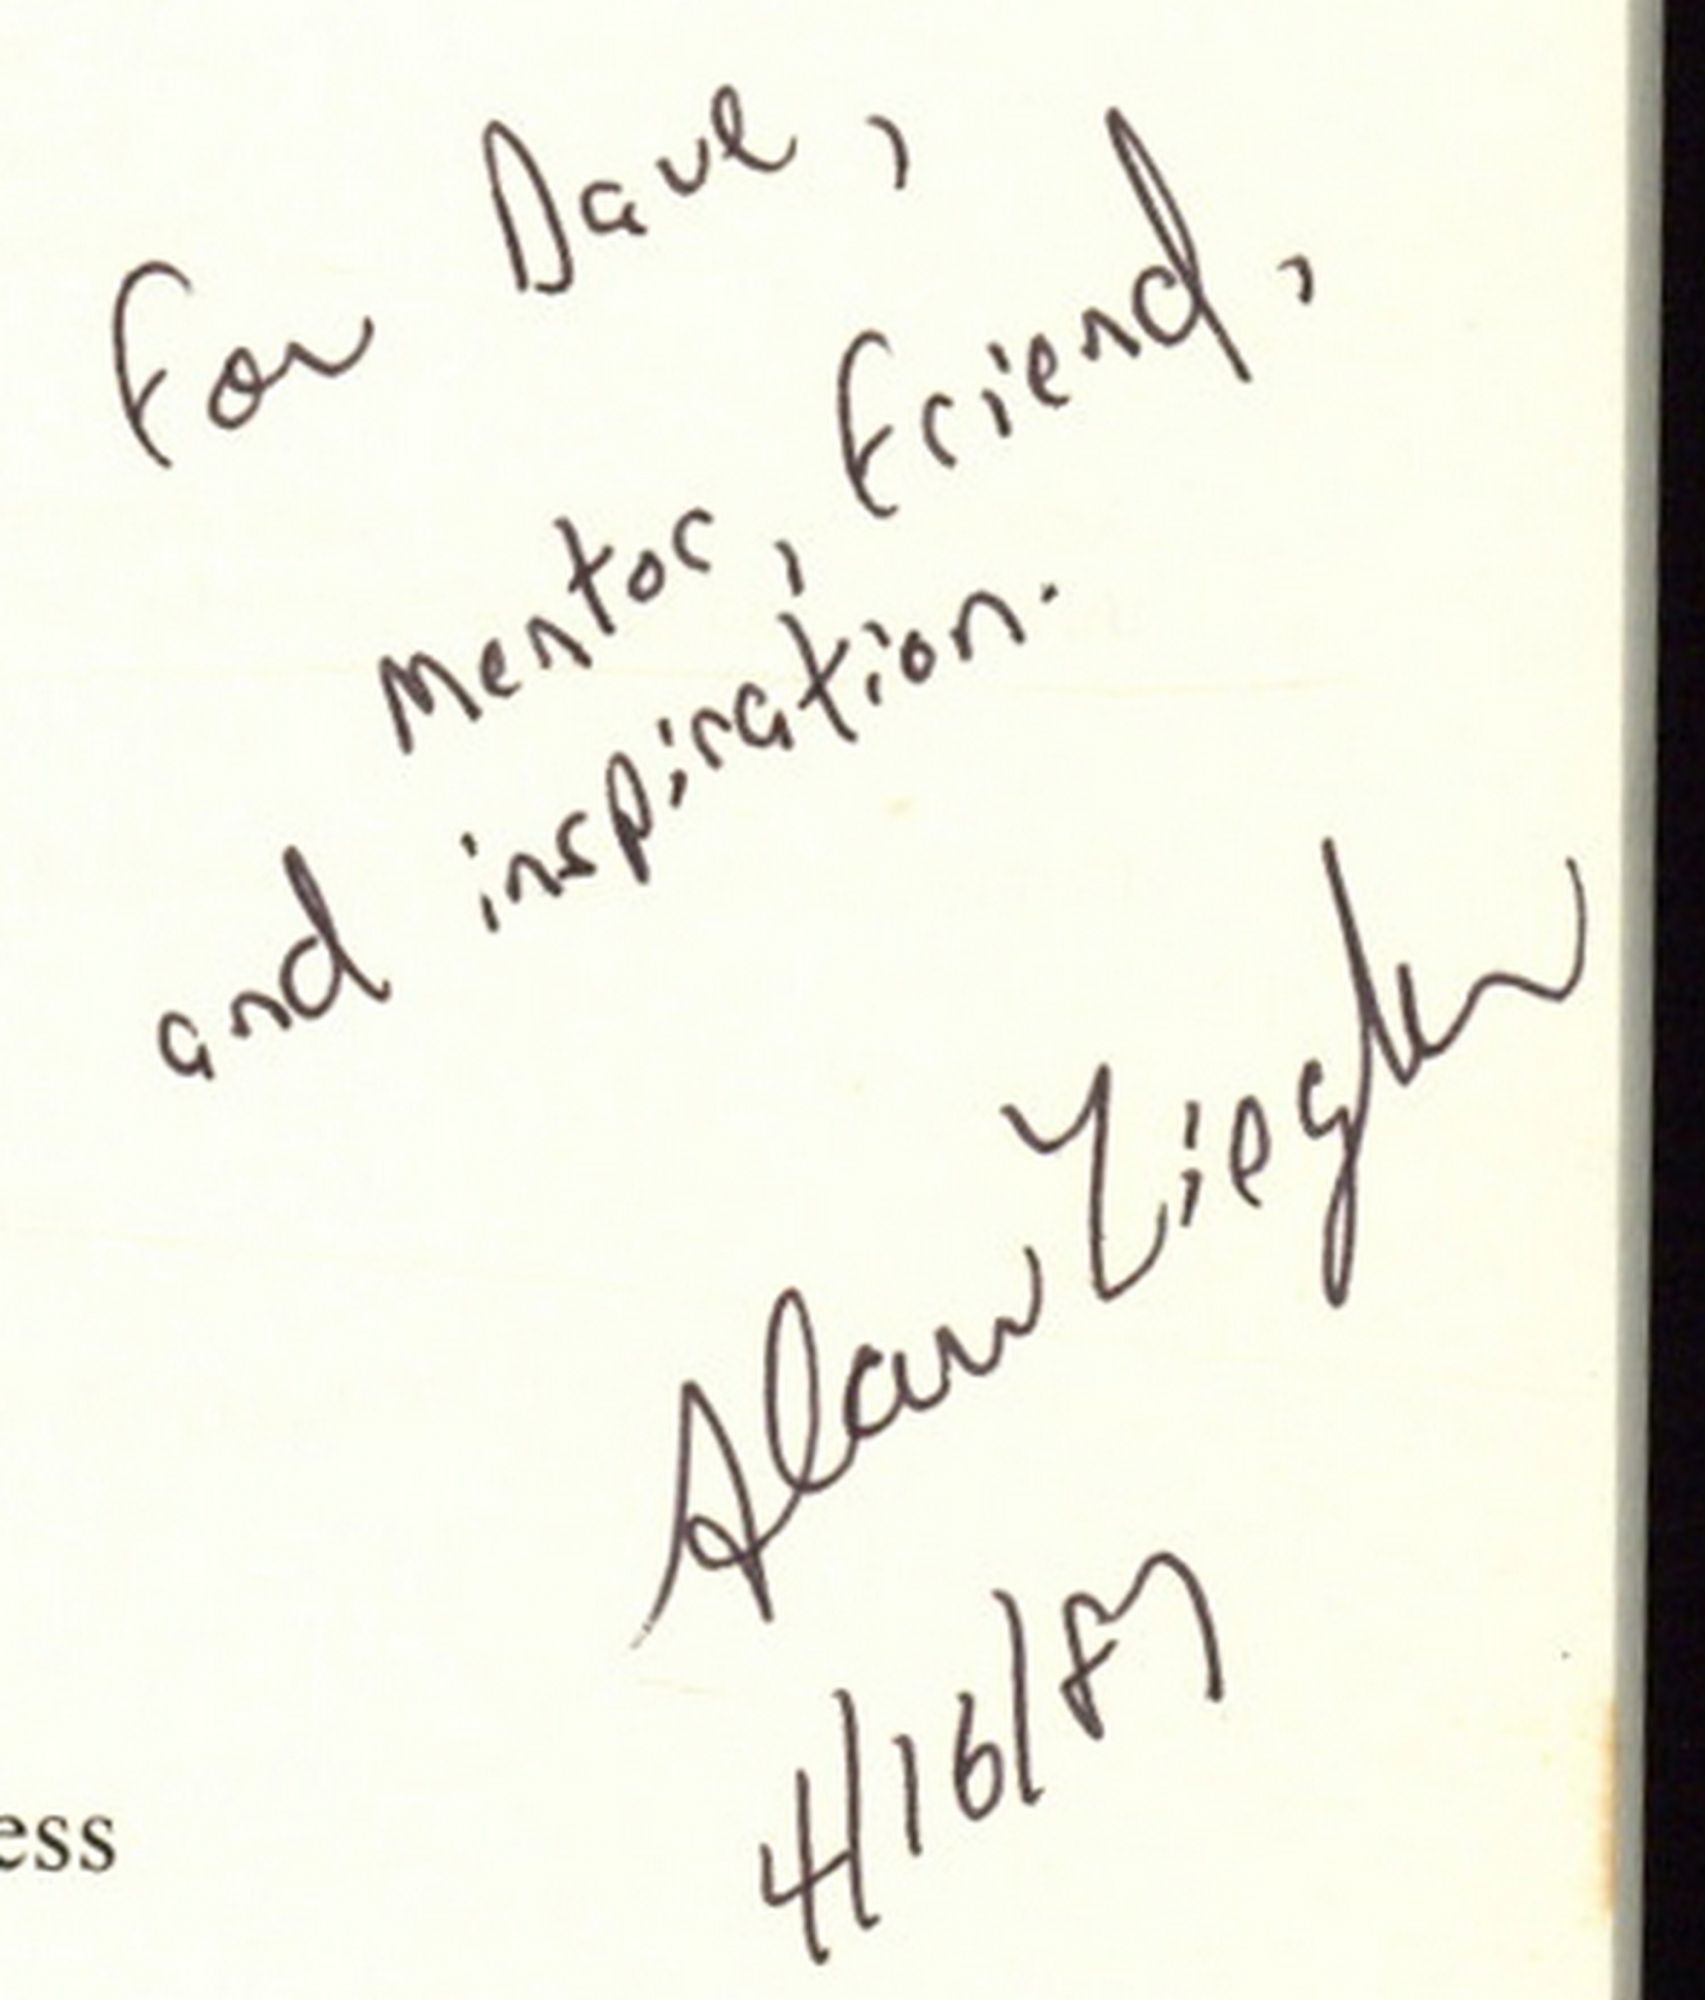 For Dave,
mentor, friend,
and inspiration.
Alan Ziegler
4/16/87
ess